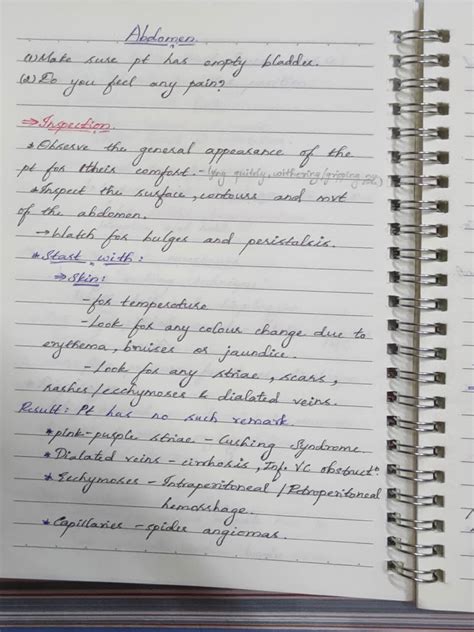 Abdomen.
(1) Make sure pt has empty bladder.
(2) Do you feel any pain?
⇒ Inspection.
* Observe the general appearance of the
pt for their comfort. - (lying quietly, withering/gripping
* Inspect the surface, contours and mvt
of the abdomen.
→ Watch for bulges and peristalsis.
* Start with:
⇒ Skin:
- for temperature
- Look for any colour change due to
erythema, bruises or jaundice.
- Look for any striae, scars,
rashes/ecchymoses & dialated veins.
Result: Pt has no such remark.
* pink-purple striae - Cushing Syndrome.
* Dialated veins - cirrhosis, Inf. VC obstructⁿ
* Ecchymoses - Intraperitoneal / Retroperitoneal
hemorrhage.
* Capillaries - spider angiomas.